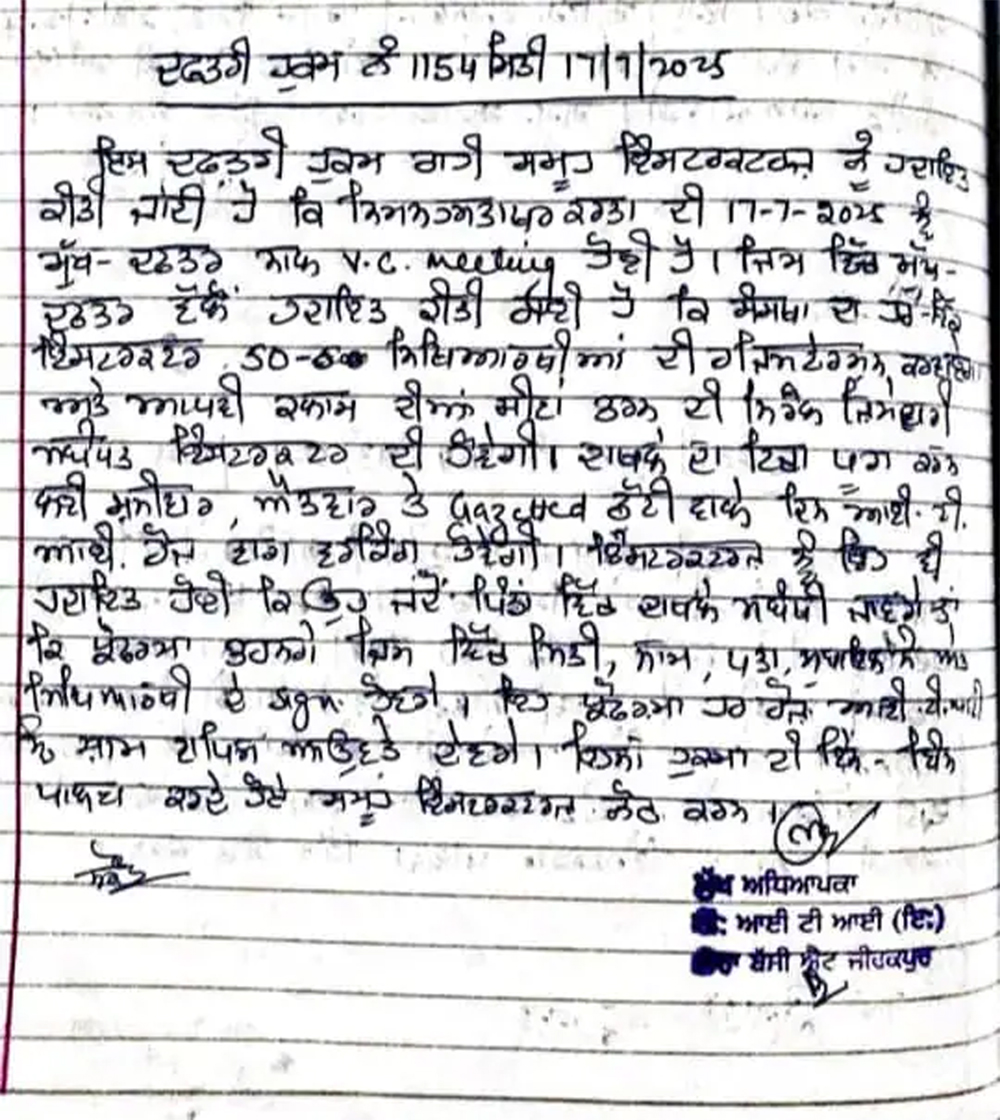 ਦਫਤਰੀ ਹੁਕਮ ਨੰ 1154 ਮਿਤੀ 17/7/2025
ਇਸ ਦਫਤਰੀ ਹੁਕਮ ਰਾਹੀ ਸਮੂਹ ਇੰਸਟਰਕਟਰਜ਼ ਨੂੰ ਹਦਾਇਤ
ਕੀਤੀ ਜਾਂਦੀ ਹੈ ਕਿ ਨਿਮਨਹਸਤਾਖਰ ਕਰਤਾ ਦੀ 17-7-2025 ਨੂੰ
ਮੁੱਖ-ਦਫਤਰ ਨਾਲ V.C. meeting ਹੋਈ ਹੈ। ਜਿਸ ਵਿੱਚ ਮੁੱਖ-
ਦਫਤਰ ਵੱਲੋਂ ਹਦਾਇਤ ਕੀਤੀ ਗਈ ਹੈ ਕਿ ਸੰਸਥਾ ਦਾ ਹਰ-ਇੱਕ
ਇੰਸਟਰਕਟਰ 50-60 ਸਿਖਿਆਰਥੀਆਂ ਦੀ ਰਜਿਸਟਰੇਸ਼ਨ
ਅਤੇ ਆਪਣੀ ਕਲਾਸ ਦੀਆਂ ਸੀਟਾਂ ਭਰਨ ਦੀ ਨਿਰੋਲ ਜਿੰਮੇਵਾਰੀ
ਸਬੰਧਤ ਇੰਸਟਰਕਟਰ ਦੀ ਹੋਵੇਗੀ। ਦਾਖਲੇ ਦਾ ਟਿਚਾ ਪੂਰਾ ਕਰਨ
ਲਈ ਸ਼ਨੀਵਾਰ, ਐਤਵਾਰ ਤੇ Gazetted ਛੁੱਟੀ ਵਾਲੇ ਦਿਨ ਆਈ.ਟੀ.
ਆਈ. ਰੋਜ਼ ਵਾਂਗ ਵਰਕਿੰਗ ਹੋਵੇਗੀ। ਇੰਸਟਰਕਟਰਜ਼ ਨੂੰ ਇਹ ਵੀ
ਹਦਾਇਤ ਹੋਈ ਕਿ ਉਹ ਜਦੋਂ ਪਿੰਡਾਂ ਵਿੱਚ ਦਾਖਲੇ ਸਬੰਧੀ ਜਾਣਗੇ ਤਾਂ
ਇਕ ਪ੍ਰੋਫਰਮਾ ਭਰਨਗੇ ਜਿਸ ਵਿੱਚ ਮਿਤੀ, ਨਾਮ, ਪਤਾ, ਮੋਬਾਇਲ ਨੰ ਅਤੇ
ਸਿਖਿਆਰਥੀ ਦੇ sign ਹੋਣਗੇ। ਇਹ ਪ੍ਰੋਫਰਮਾ ਹਰ ਰੋਜ਼ ਆਈ.ਟੀ.ਆਈ
ਸ਼ਾਮ ਵਾਪਿਸ ਦੇਣਗੇ। ਇਹਨਾਂ ਹੁਕਮਾ ਦੀ ਇੰਨ-ਬਿੰਨ
ਪਾਲਣਾ ਕਰਦੇ ਹੋਏ ਸਮੂਹ ਇੰਸਟਰਕਟਰਜ਼ ਨੋਟ ਕਰਨ।
ਮੁੱਖ ਅਧਿਆਪਕਾ
ਸ: ਆਈ ਟੀ ਆਈ (ਇ:)
ਬੱਸੀ ਐਟ ਜੀਰਕਪੁਰ